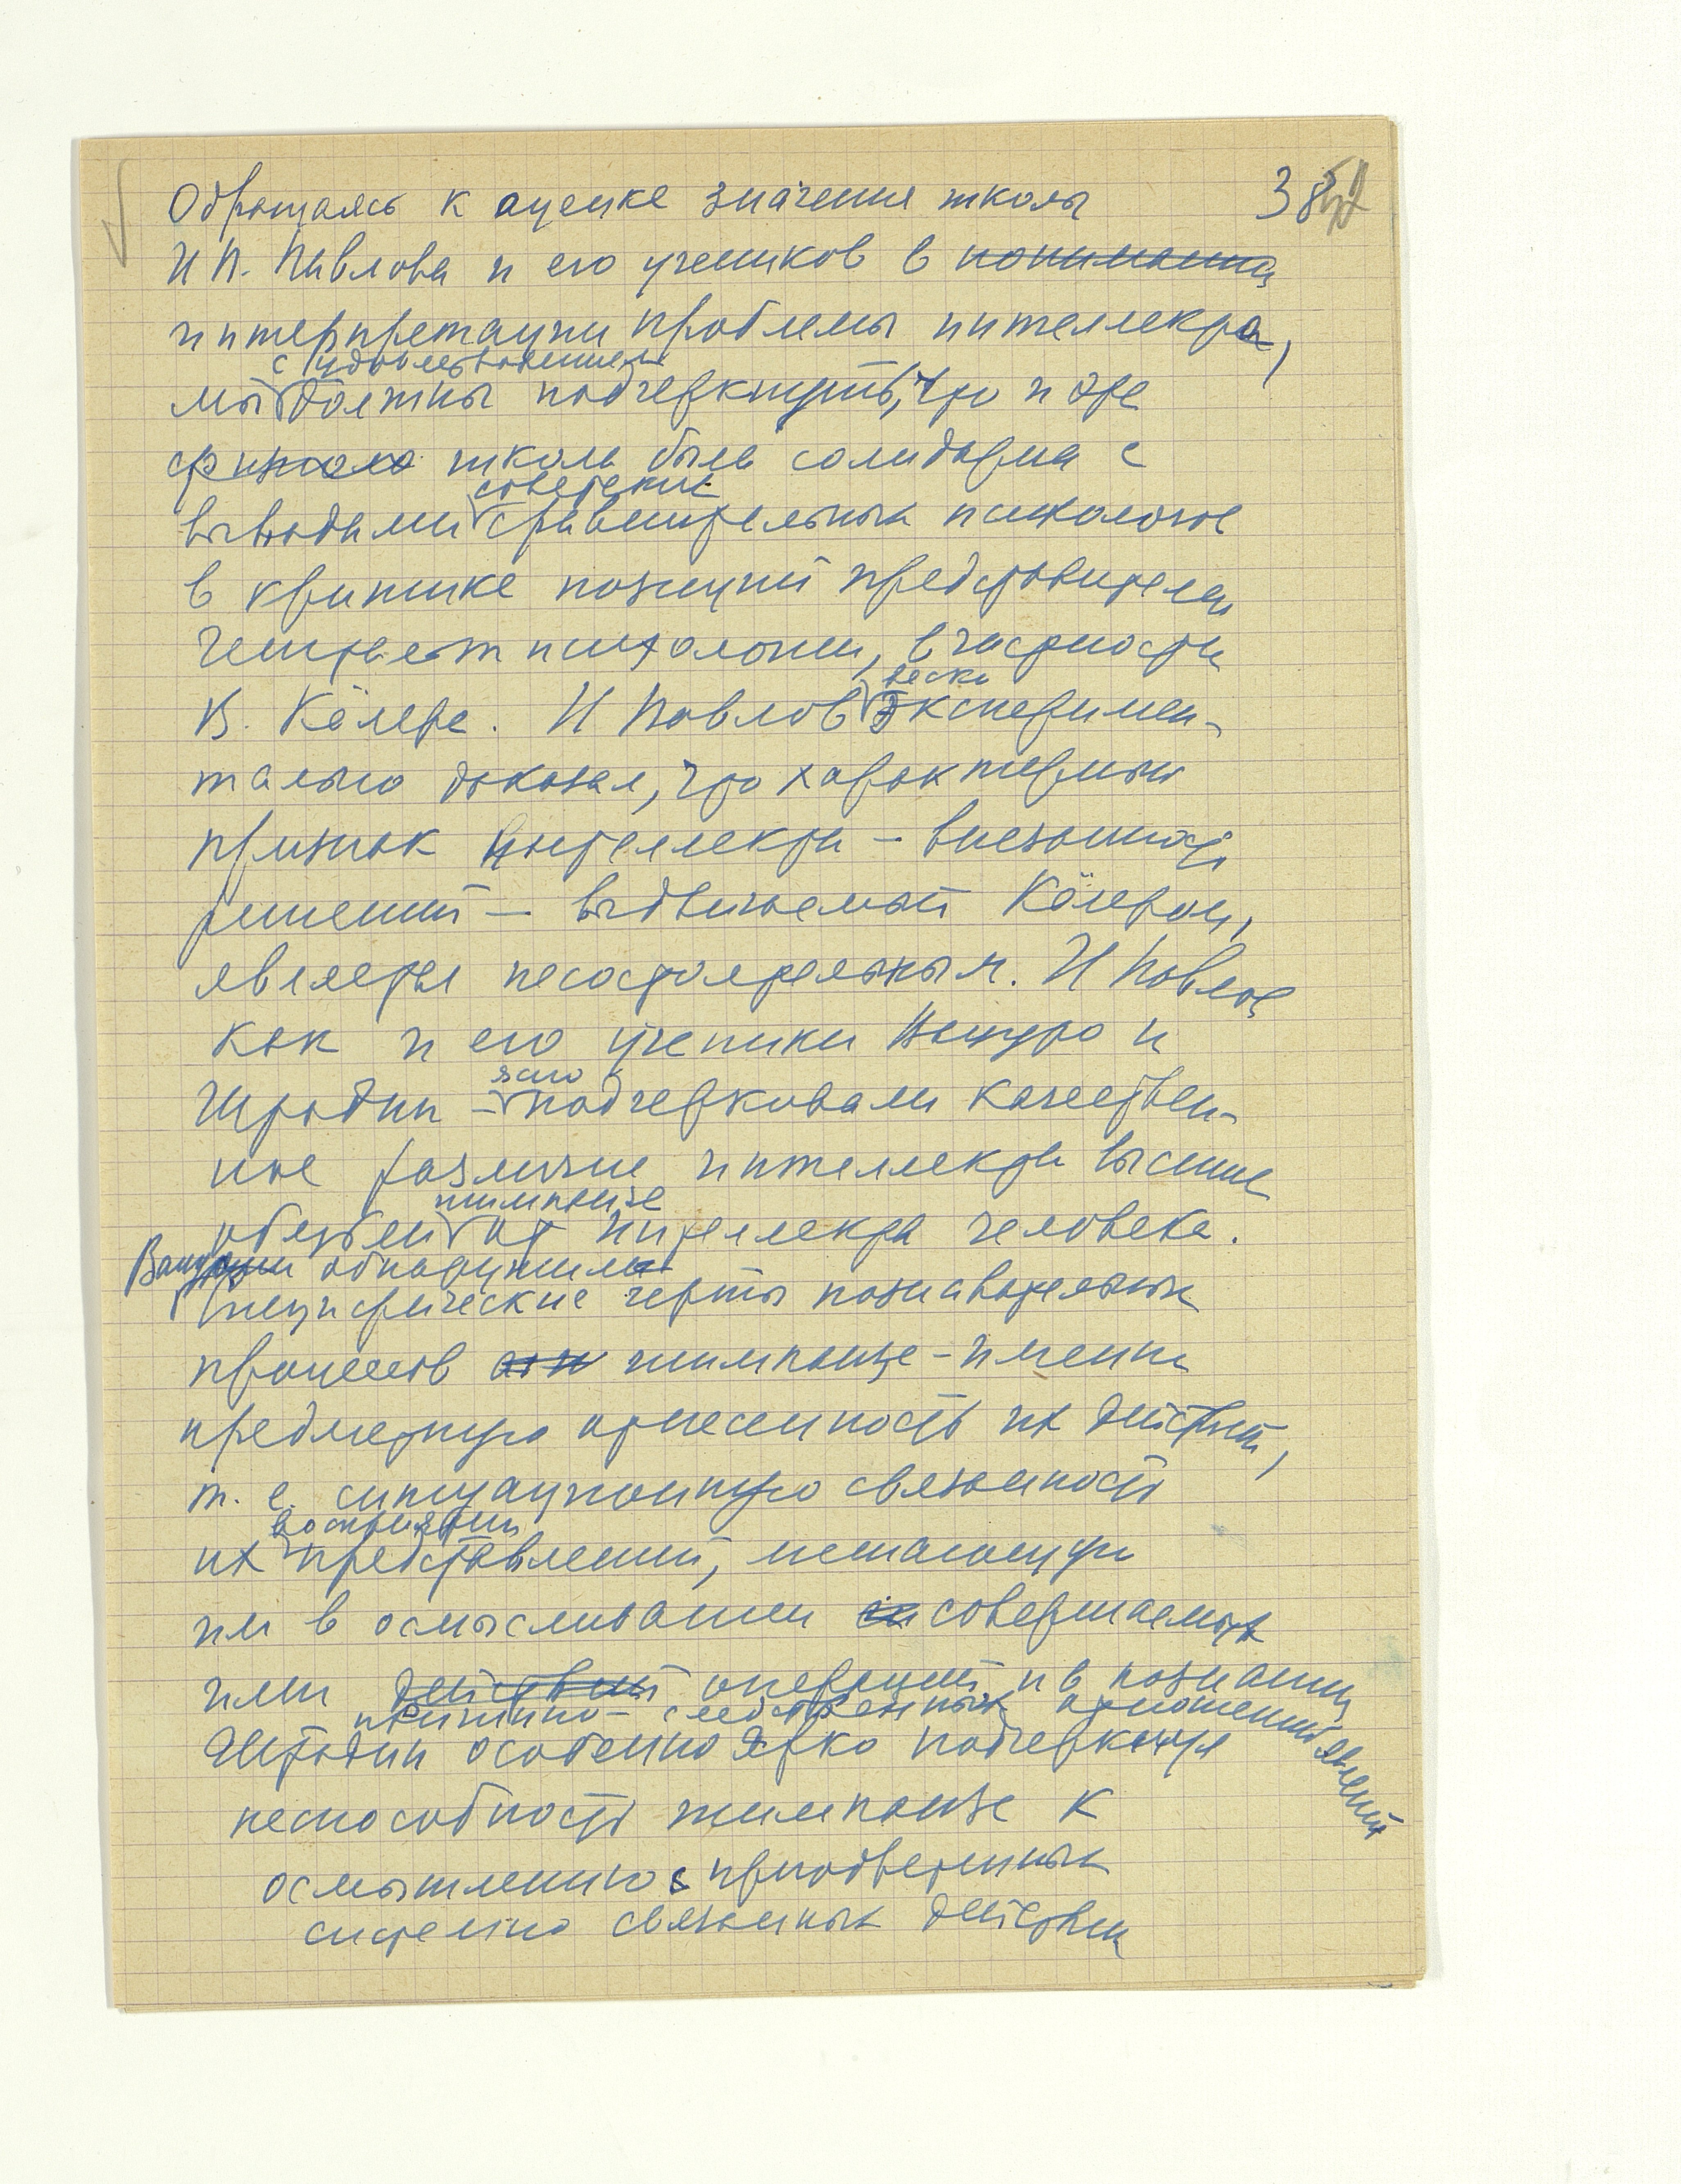 Обращаясь к оценке значения школы 38
И П. Павлова и его учеников в понимании
интерпретации проблемы интеллекта,
с удовлетворением
мы должны подчеркнуть, что и эта
школа была солидарна с
советских
выводами сравнительных психологов
в критике позиций представителей
гештальт психологии, в частности
В. Кёлера. И Павлов веско эксперимен-
тально доказал, что характерный
признак интеллекта – внезапность
решений – выдвигаемый Кёлером,
является несостоятельным. И Павлов
как и его ученики Вацуро и
ясно
Штодин – подчеркивали качествен-
ное различие интеллекта высших
шимпанзе
обезьян от интеллекта человека.
Вацуро обнаружил
специфические черты познавательных
процессов шимпанзе – именно
предметную отнесенность их действий,
т. е. ситуационную связанность
восприятий
их представлений, неспособность
им в осмысливании совершаемых
ими действий операций и в познании
причинно-следственных отношений явлений
Штодин особенно ярко подчеркнул
неспособность шимпанзе к
осмышлению приобретенных
системно связанных действий